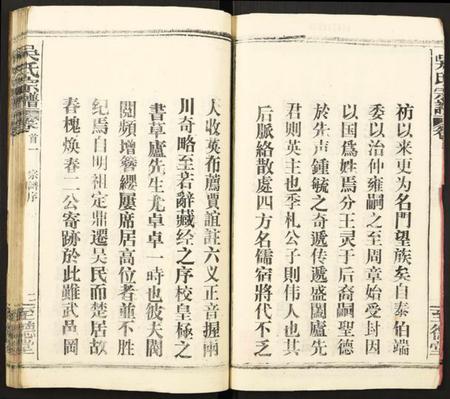 祊以来更为名門望族矣自泰伯端
委以治仲雍嗣之至周章始受封因
以国爲姓焉分王灵于后裔嗣聖德
於先声鍾毓之奇遞传遞盛闔廬先
君则英主也季札公子則伟人也其
后脈絡散處四方名儒宿將代不乏
人收英布薦賈誼註六义正音握兩
川奇略至若辭藏经之序校皇極之
書草廬先生尤卓卓一時也彼夫閥
閲頻增簪纓屢席居高位者並不胜
紀焉自明祖定鼎遷吴民而楚居故
春槐煥春二公寄跡於此雖武邑岡
吳氏宗譜
卷首一
宗譜序
二
至德堂
吳氏宗譜
卷
至德堂